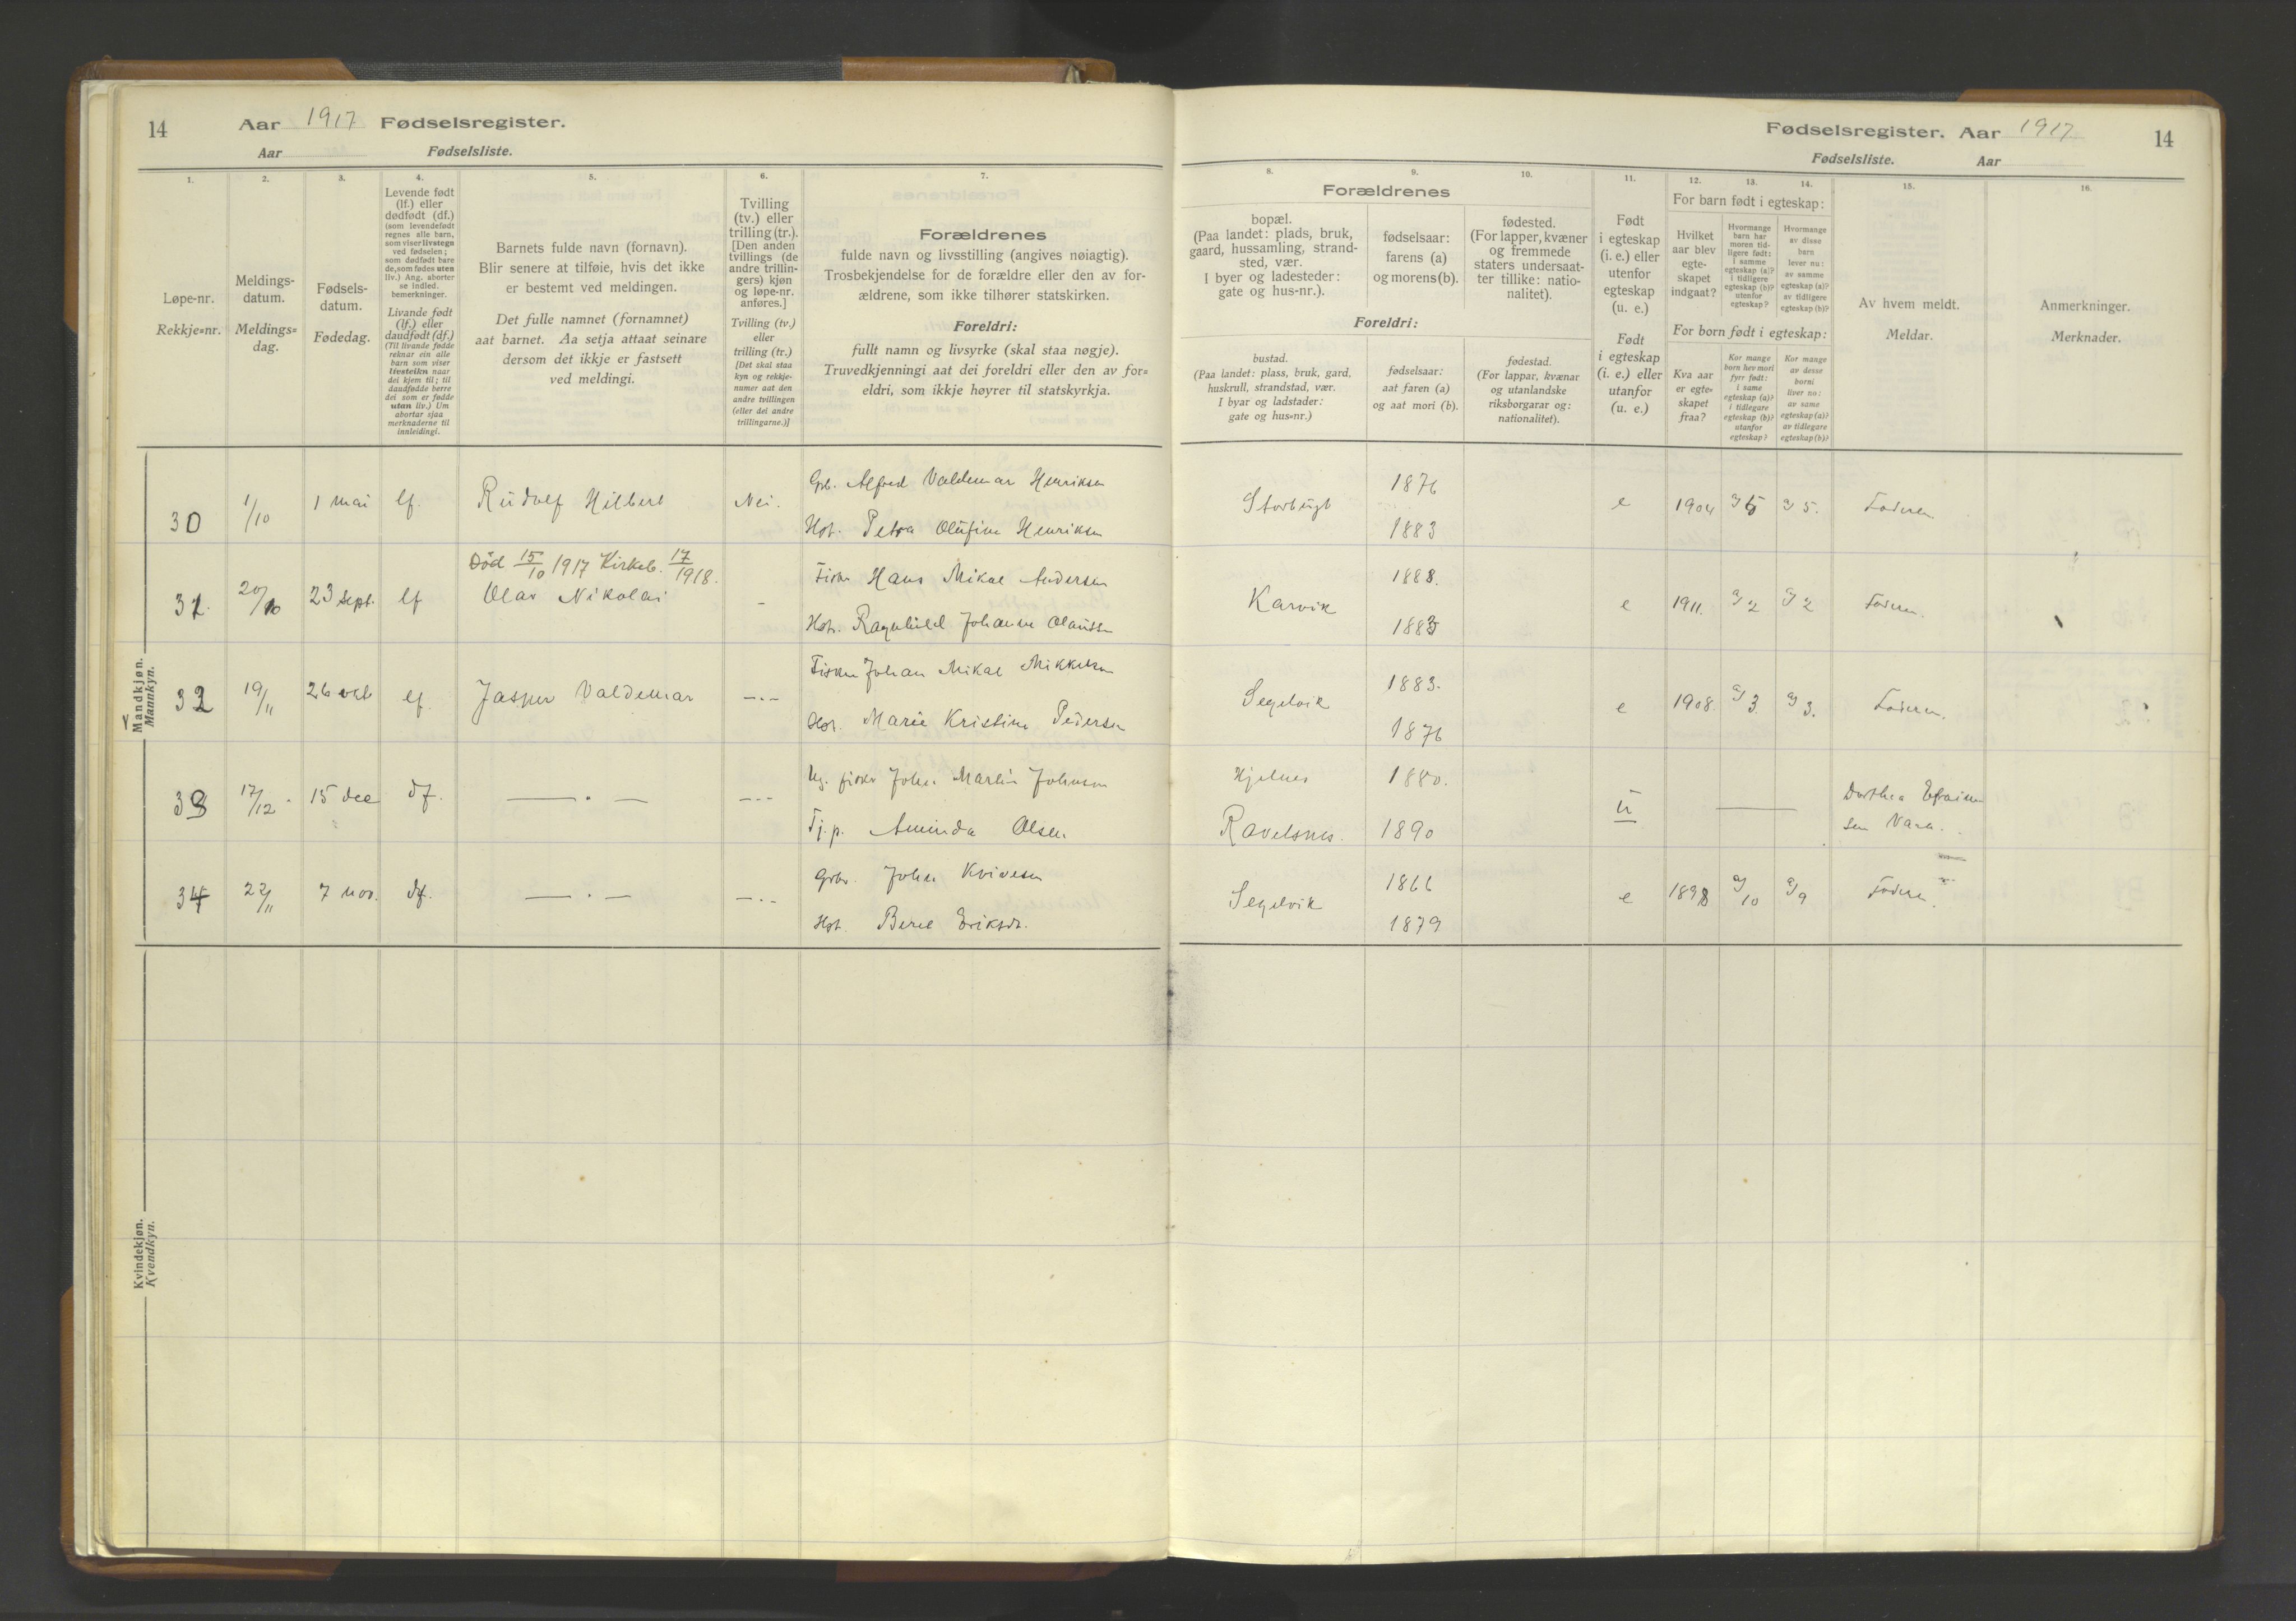 14 Aar 1917 Fødselsregister.
Aar Fødselsliste.
Fødselsregister. Aar 1917 14
Fødselsliste. Aar
1.
Løpe-nr.
Rekkje=nr.
2.
Meldings-
datum.
Meldings=
dag.
3.
Fødsels-
datum.
Fødedag.
4.
Levende født
(lf.) eller
dødfødt (df.)
(som levendefødt
regnes alle barn,
som viser livstegn
ved fødselen;
som dødfødt bare
de, som fødes uten
liv.) Ang. aborter
se indled.
bemerkninger.
Livande født
(lf.) eller
daudfødt (df.)
(Til livande fødde
reknar ein alle
barn som viser
livsteikn naar
dei kjem til; til
daudfødde berre
dei som er fødde
utan liv.) Um
abortar sjaa
merknaderne til
innleidingi.
5.
Barnets fulde navn (fornavn).
Blir senere at tilføie, hvis det ikke
er bestemt ved meldingen.
Det fulle namnet (fornamnet)
aat barnet. Aa setja attaat seinare
dersom det ikkje er fastsett
ved meldingi.
6.
Tvilling
(tv.) eller
trilling (tr.).
[Den anden
tvillings (de
andre trillin-
gers) kjøn
og løpe-nr.
anføres.]
Tvilling (tv.)
eller
trilling (tr.)
[Det skal staa
kyn og rekkje-
numer aat den
andre tvillingen
(eller dei andre
trillingarne.)]
7.
Forældrenes
fulde navn og livsstilling (angives nøiagtig).
Trosbekjendelse for de forældre eller den av for-
ældrene, som ikke tilhører statskirken.
Foreldri:
fullt namn og livsyrke (skal staa nøgje).
Truvedkjenningi aat dei foreldri eller den av for=
eldri, som ikkje høyrer til statskyrkja.
Forældrenes
8.
bopæl.
(Paa landet: plads, bruk,
gaard, hussamling, strand-
sted, vær.
I byer og ladesteder:
gate og hus-nr.).
9.
fødselsaar:
farens (a)
og morens (b).
10.
fødested.
(For lapper, kvæner
og fremmede
staters undersaat-
ter tillike: natio-
nalitet).
Foreldri:
bustad.
(Paa landet: plass, bruk, gard,
huskrull, strandstad, vær.
I byar og ladstader:
gate og hus=nr.)
fødselsaar:
aat faren (a)
og aat mori (b).
fødestad.
(For lappar, kvænar
og utanlandske
riksborgarar og:
nationalitet).
11.
Født
i egteskap
(i. e.) eller
utenfor
egteskap
(u. e.)
Født
i egteskap
(i. e.) eller
utanfor
(u. e.)
12. 13. 14.
For barn født i egteskap:
Hvilket
aar blev
egte-
skapet
indgaat?
Hvormange
barn har
moren tid-
ligere født:
i samme
egteskap (a)?
i tidligere
egteskap (b)?
utenfor
egteskap?
Hvormange
av disse
barn
lever nu:
av samme
egteskap (a)?
av tidligere
egteskap (b)?
For born født i egteskap:
Kva aar
er egte=
skapet
fraa?
Kor mange
born hev mori
fyrr født:
i same
egteskap (a)?
i tidlegare
egteskap (b)?
utanfor
egteskap?
Kor mange
av desse
borni
liver no:
av same
egteskap (a)?
av tidlegare
egteskap (b)?
15.
Av hvem meldt.
Meldar.
16.
Anmerkninger.
Merknader.
Mandkjøn.
Mannkyn.
30 1/10 1 mai lf. Rudolf Hilbert Nei. Gb. Alfred Valdemar Henriksen Storbugt 1876 e 1904 a) 5 a) 5. Faderen
Hst. Petra Olufine Henriksen 1883
Död 15/10 1917 Kirkeb. 17/1918.
31. 20/10 23 Sept. lf Olav Nikolai - Fisker Hans Mikal Andersen Karvik 1888. e 1911. a) 2 a) 2 Faderen.
Hstr. Ragnhild Johanne Olaussen
32 19/11 26 okt lf Jasper Valdemar -.- Fisker Johan Mikal Mikkelsen Segelvik 1883. e 1908. a) 3. a) 3. Faderen.
Hstr. Marie Kristine Pedersen 1876
33 17/12. 15 dec df. — . — -.- Ug. fisker Johan Martin Johnsen Hjelnes 1880. u — Dorthea Efraim
Tj.p. Aminda Olsen Ravelsnes. 1890 sen Vara.
34 22/11 7 nov. df. — . — -.- Grbr. Johan Kvivesen Segelvik 1866 e 1898 a) 10 a) 9 Faderen.
Hst. Beret Eriksdr. 1879
Kvindekjøn.
Kvendkyn.